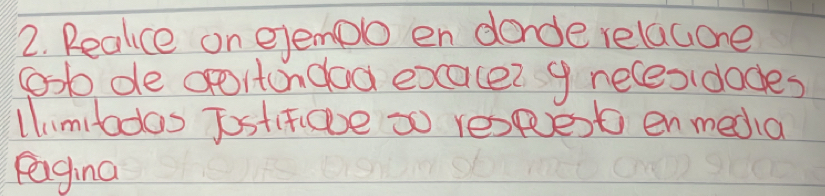 2. Realice un ejemplo en donde relacione
costo de oportundad escacez y necesidades
Ilimitadas Justifique su respuesta en media
Pagina